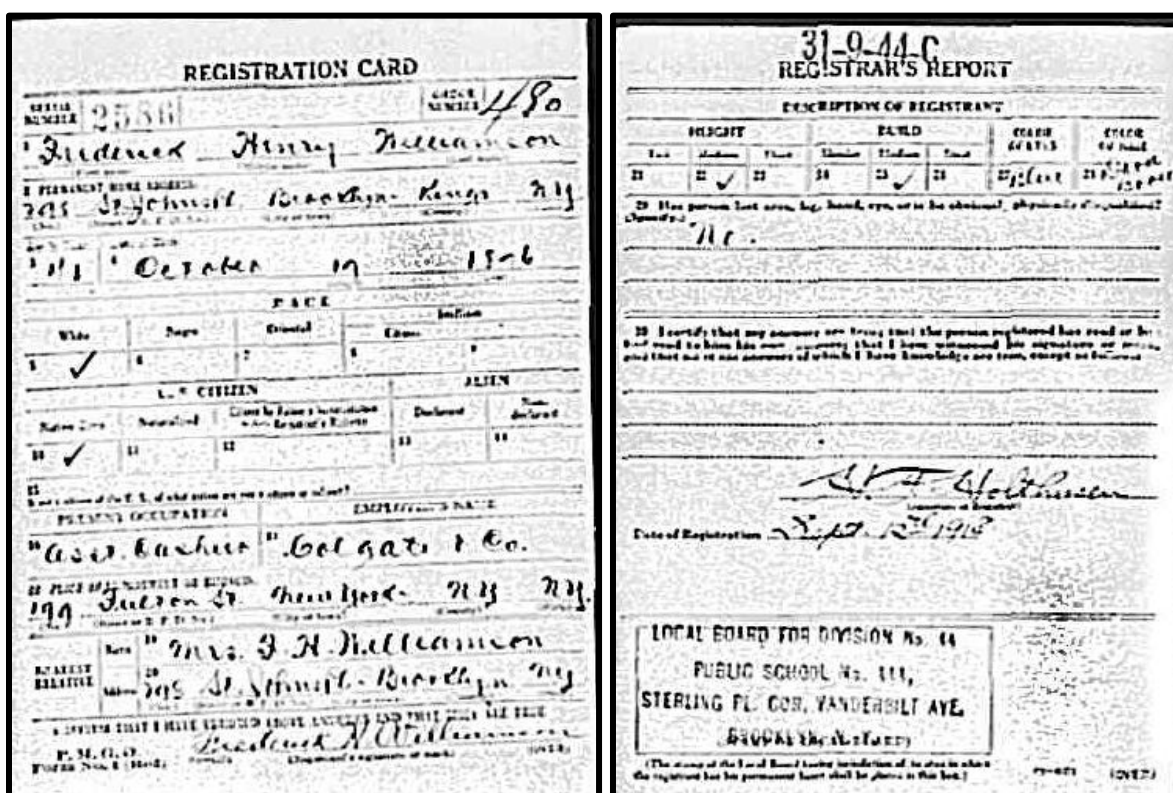 REGISTRATION CARD
SERIAL NUMBER 2586 ORDER NUMBER 490
1 Frederick Henry Williamson
2 PERMANENT HOME ADDRESS
St. Brooklyn Kings NY
October 1876
RACE
White Negro Oriental Indian
5 ✓ 6 7 8 9
U. S. CITIZEN ALIEN
Native Born Naturalized Declarant Non-declarant
10 ✓ 11 12 13 14
15
PRESENT OCCUPATION EMPLOYER'S NAME
16 Asst. Cashier 17 Colgate & Co.
18 PLACE OF EMPLOYMENT OR BUSINESS
199 Fulton St. New York NY NY.
NEAREST RELATIVE
Name 19 Mrs. F. H. Williamson
Address 20 St. Brooklyn NY
I AFFIRM THAT I HAVE VERIFIED ABOVE ANSWERS AND THAT THEY ARE TRUE
P. M. G. O.
Form No. 1 (Red) Frederick H. Williamson
(Registrant's signature or mark) (OVER)
31-9-44-C
REGISTRAR'S REPORT
DESCRIPTION OF REGISTRANT
HEIGHT BUILD COLOR OF EYES COLOR OF HAIR
Tall Medium Short Slender Medium Stout
21 22 ✓ 23 24 25 ✓ 26 27 Blue 28
29 Has person lost arm, leg, hand, eye, or is he obviously physically disqualified?
(Specify.)
No.
30 I certify that my answers are true; that the person registered has read or has
had read to him his own answers; that I have witnessed his signature or mark,
and that all of his answers of which I have knowledge are true, except as follows:
(Signature of Registrar)
Date of Registration Sept. 12 1918
LOCAL BOARD FOR DIVISION No. 44
PUBLIC SCHOOL No. 111,
STERLING PL. COR. VANDERBILT AVE.
BROOKLYN, N. Y.
(The stamp of the Local Board having jurisdiction of the area in which
the registrant has his permanent home shall be placed in this box.)
(OVER)